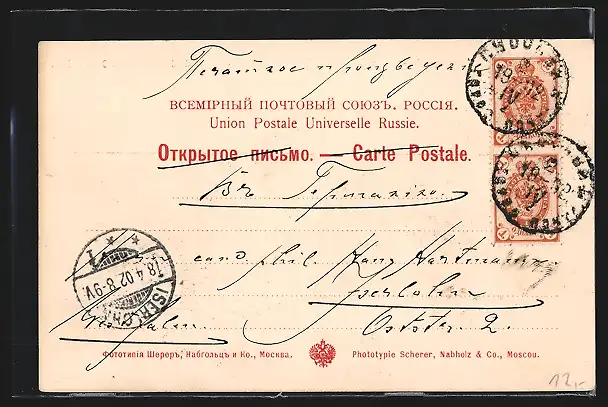 Печатное произведение
ВСЕМІРНЫЙ ПОЧТОВЫЙ СОЮЗЪ. РОССІЯ.
Union Postale Universelle Russie.
Открытое письмо. — Carte Postale.
Въ Германію.
cand. phil. Hans Hartmann
Iserlohn
Oststr. 2.
Westfalen
18.4.02.8-9V.
ISERLOHN
Фототипія Шереръ, Набгольцъ и Ко., Москва.
Phototypie Scherer, Nabholz & Co., Moscou.
12,-